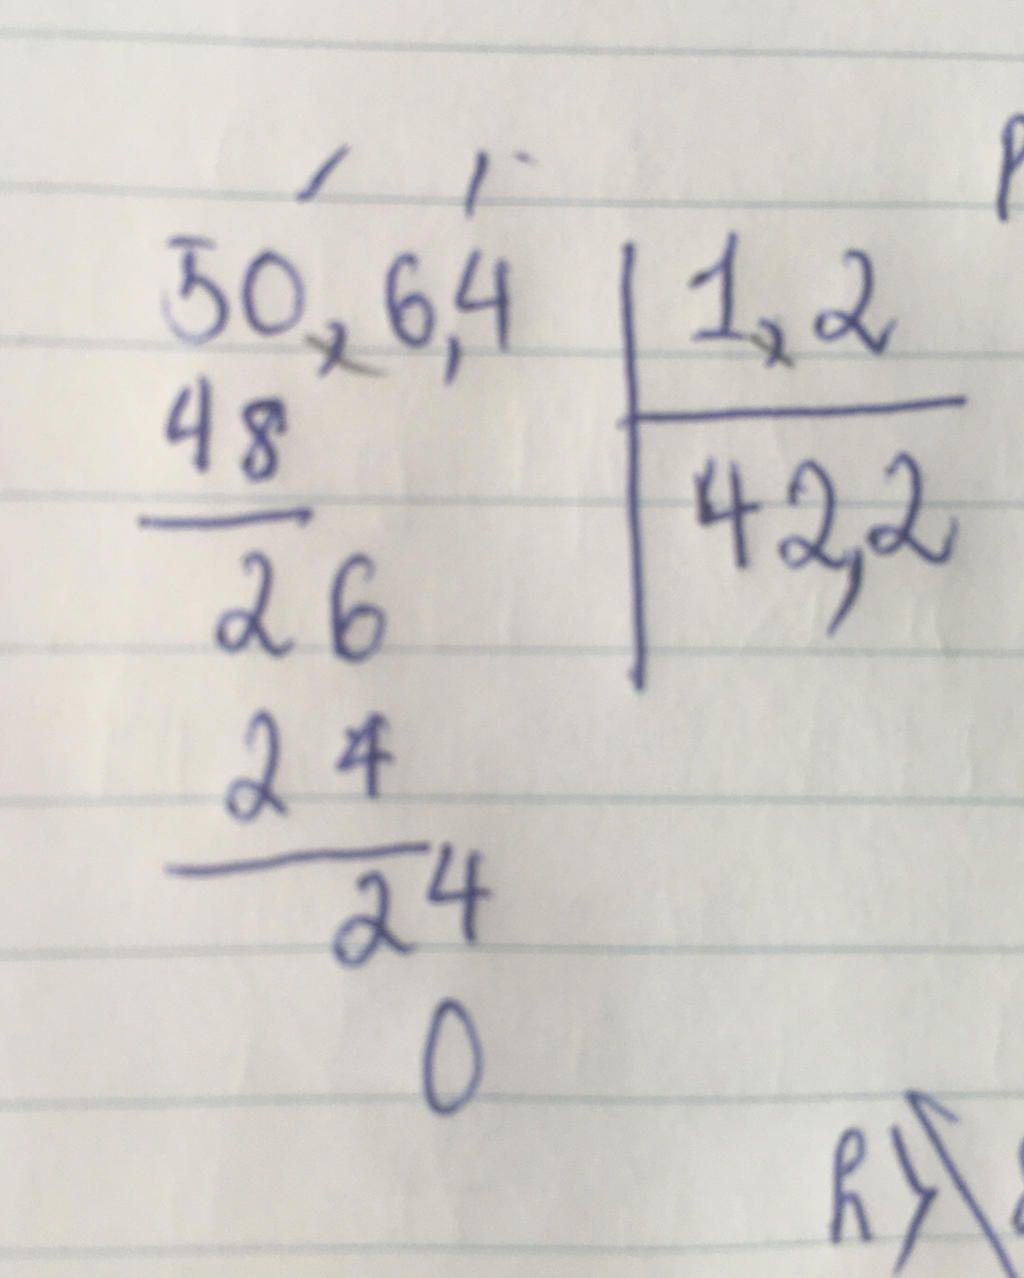 50,6,4 | 1,2
48 | 42,2
26
24
24
0
h)